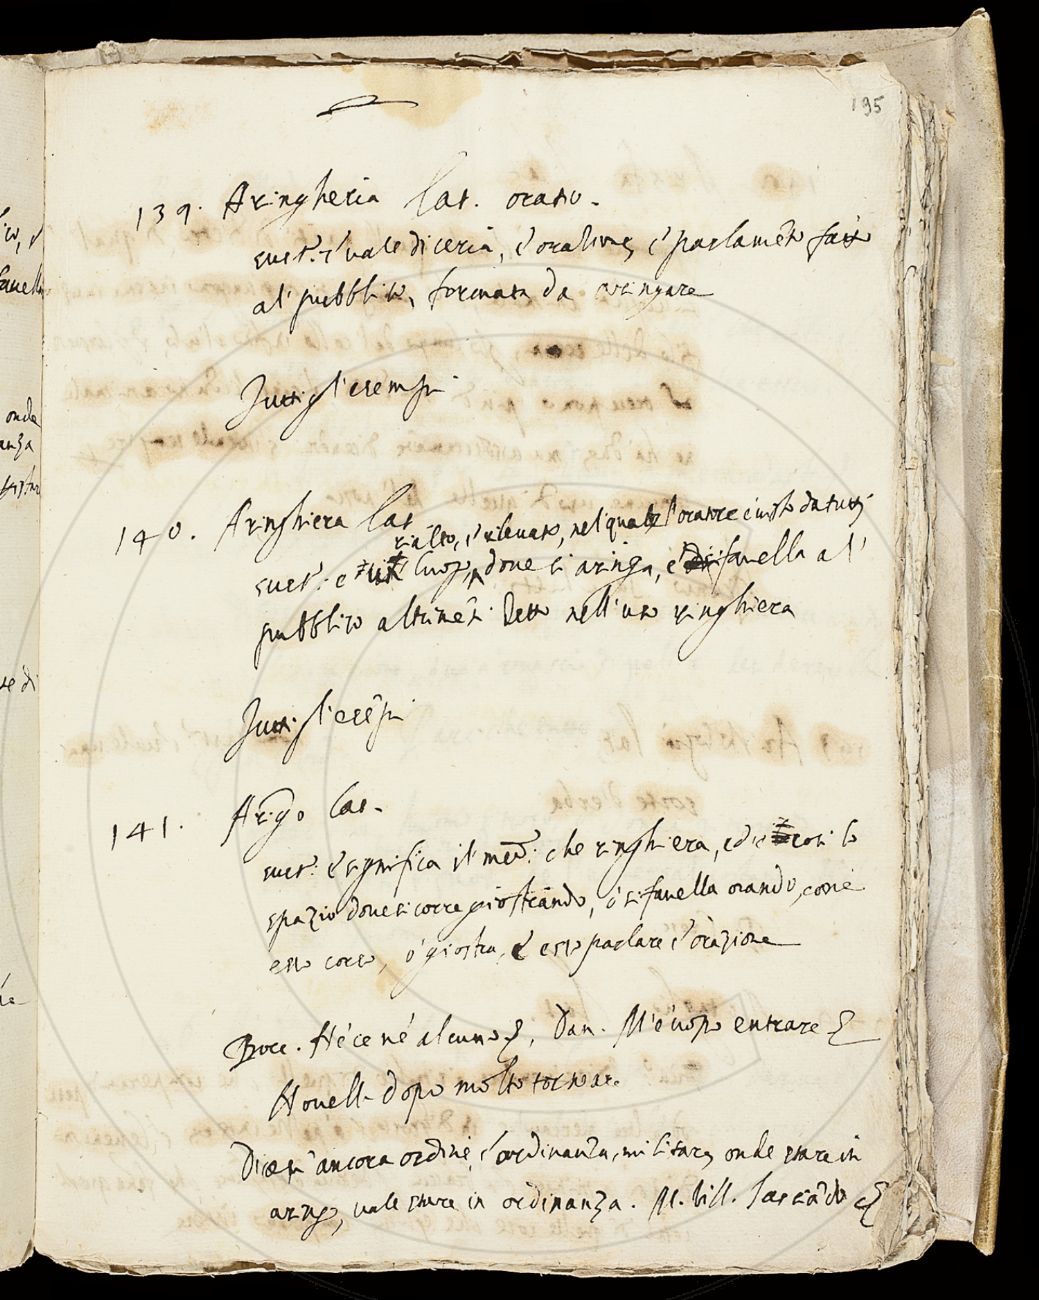 195
139. Aringheria Lat. oratio.
sust. e vale diceria, e orazione, e parlamẽto fatto
al pubblico, formata da aringare
Tutti gl'esempi
140. Aringhiera Lat.
rialto, e rilevato, nel quale l'oratore è visto da tutti
sust: e luogo, dove si aringa, e favella al
pubblico altrimẽti detto nell'uso ringhiera
Tutti gl'esẽpi
141. Aringo Lat.
sust: e significa il med: che ringhiera, ed è così lo
spazio dove si corre giostrando, o si favella orando, come
esso corso, o giostra, e esso parlare e orazione
Bocc. Né ce né alcuno, Dan. M'è uopo entrare
Novell. dopo molto tornare.
Dicesi ancora ordine, e ordinanza militare, onde stare in
aringo, vale stare in ordinanza. M. Vill. lasciãdo